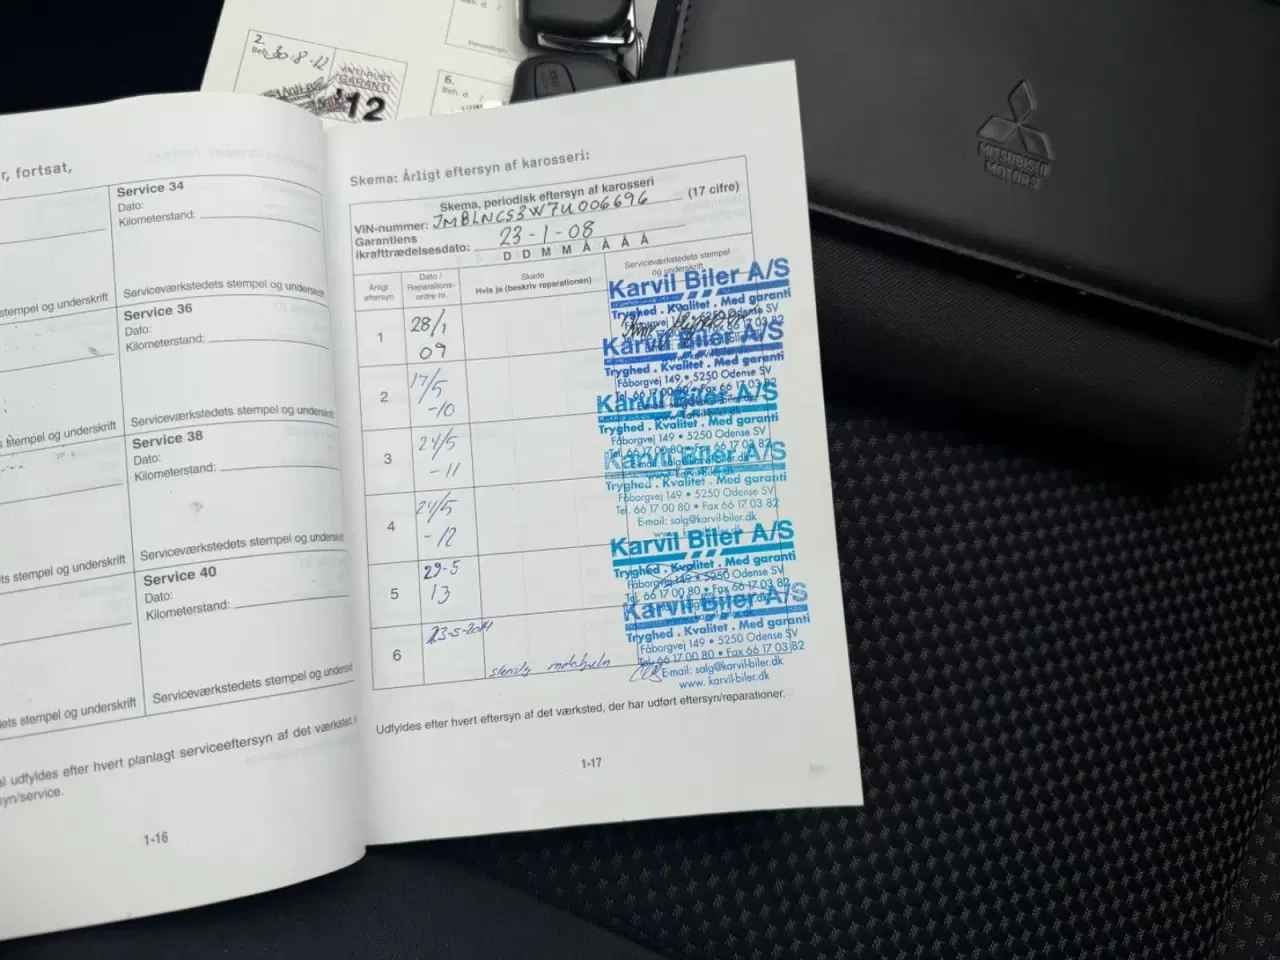 2.
Beh. 30-8-12
ANTI-RUST
GARANTI
'12
6.
Beh. d.
MITSUBISHI
MOTORS
r, fortsat,
Service 34
Dato:
Kilometerstand:
stempel og underskrift
Serviceværkstedets stempel og underskrift
Service 36
Dato:
Kilometerstand:
s stempel og underskrift
Serviceværkstedets stempel og underskrift
Service 38
Dato:
Kilometerstand:
ts stempel og underskrift
Serviceværkstedets stempel og underskrift
Service 40
Dato:
Kilometerstand:
dets stempel og underskrift
Serviceværkstedets stempel og underskrift
al udfyldes efter hvert planlagt serviceeftersyn af det værksted,
syn/service.
1-16
Skema: Årligt eftersyn af karosseri:
Skema, periodisk eftersyn af karosseri
VIN-nummer: JMBLNCS3W7U006696 (17 cifre)
Garantiens
ikrafttrædelsesdato: 23-1-08
D D M M Å Å Å Å
Årligt
eftersyn
Dato /
Reparations-
ordre nr.
Skade
Hvis ja (beskriv reparationen)
Serviceværkstedets stempel
og underskrift
1
28/1
09
2
17/5
-10
3
24/5
-11
4
24/5
-12
5
29-5
13
6
23-5-2014
Karvil Biler A/S
Tryghed . Kvalitet . Med garanti
5250 Odense SV
Karvil Biler A/S
Tryghed . Kvalitet . Med garanti
Fåborgvej 149 • 5250 Odense SV
Tel. 66 17 00 80 • Fax 66 17 03 82
Karvil Biler A/S
Tryghed . Kvalitet . Med garanti
Fåborgvej 149 • 5250 Odense SV
Tel. 66 17 00 80 • Fax 66 17 03 82
Karvil Biler A/S
Tryghed . Kvalitet . Med garanti
Fåborgvej 149 • 5250 Odense SV
Tel. 66 17 00 80 • Fax 66 17 03 82
E-mail: salg@karvil-biler.dk
Karvil Biler A/S
Tryghed . Kvalitet . Med garanti
Fåborgvej 149 • 5250 Odense SV
Tel. 66 17 00 80 • Fax 66 17 03 82
Karvil Biler A/S
Tryghed . Kvalitet . Med garanti
Fåborgvej 149 • 5250 Odense SV
Tel. 66 17 00 80 • Fax 66 17 03 82
E-mail: salg@karvil-biler.dk
www. karvil-biler.dk
Udfyldes efter hvert eftersyn af det værksted, der har udført eftersyn/reparationer.
1-17